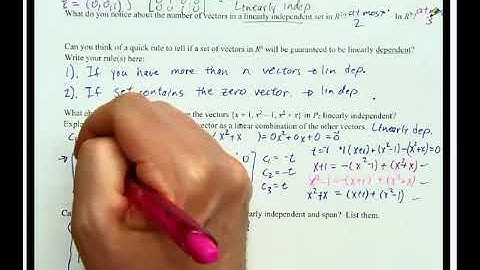 = (0,0,1)} Linearly indep
What do you notice about the number of vectors in a linearly independent set in R²? at most 2 In R³? at most 3
Can you think of a quick rule to tell if a set of vectors in Rⁿ will be guaranteed to be linearly dependent?
Write your rule(s) here:
1). If you have more than n vectors → lin dep.
2). If set contains the zero vector. → lin dep.
What ab the vectors {x + 1, x² − 1, x² + x} in P₂ linearly independent?
Expla vector as a linear combination of the other vectors. Linearly dep.
(x²+x) = 0x²+0x+0 = 0
t=-1 1(x+1)+(x²-1)-(x²+x)=0
c₁ = -t x+1 = -(x²-1)+(x²+x)
c₂ = -t x²-1 = -(x+1)+(x²+x)
c₃ = t x²+x = (x+1)+(x²-1)
Ca early independent and span? List them.